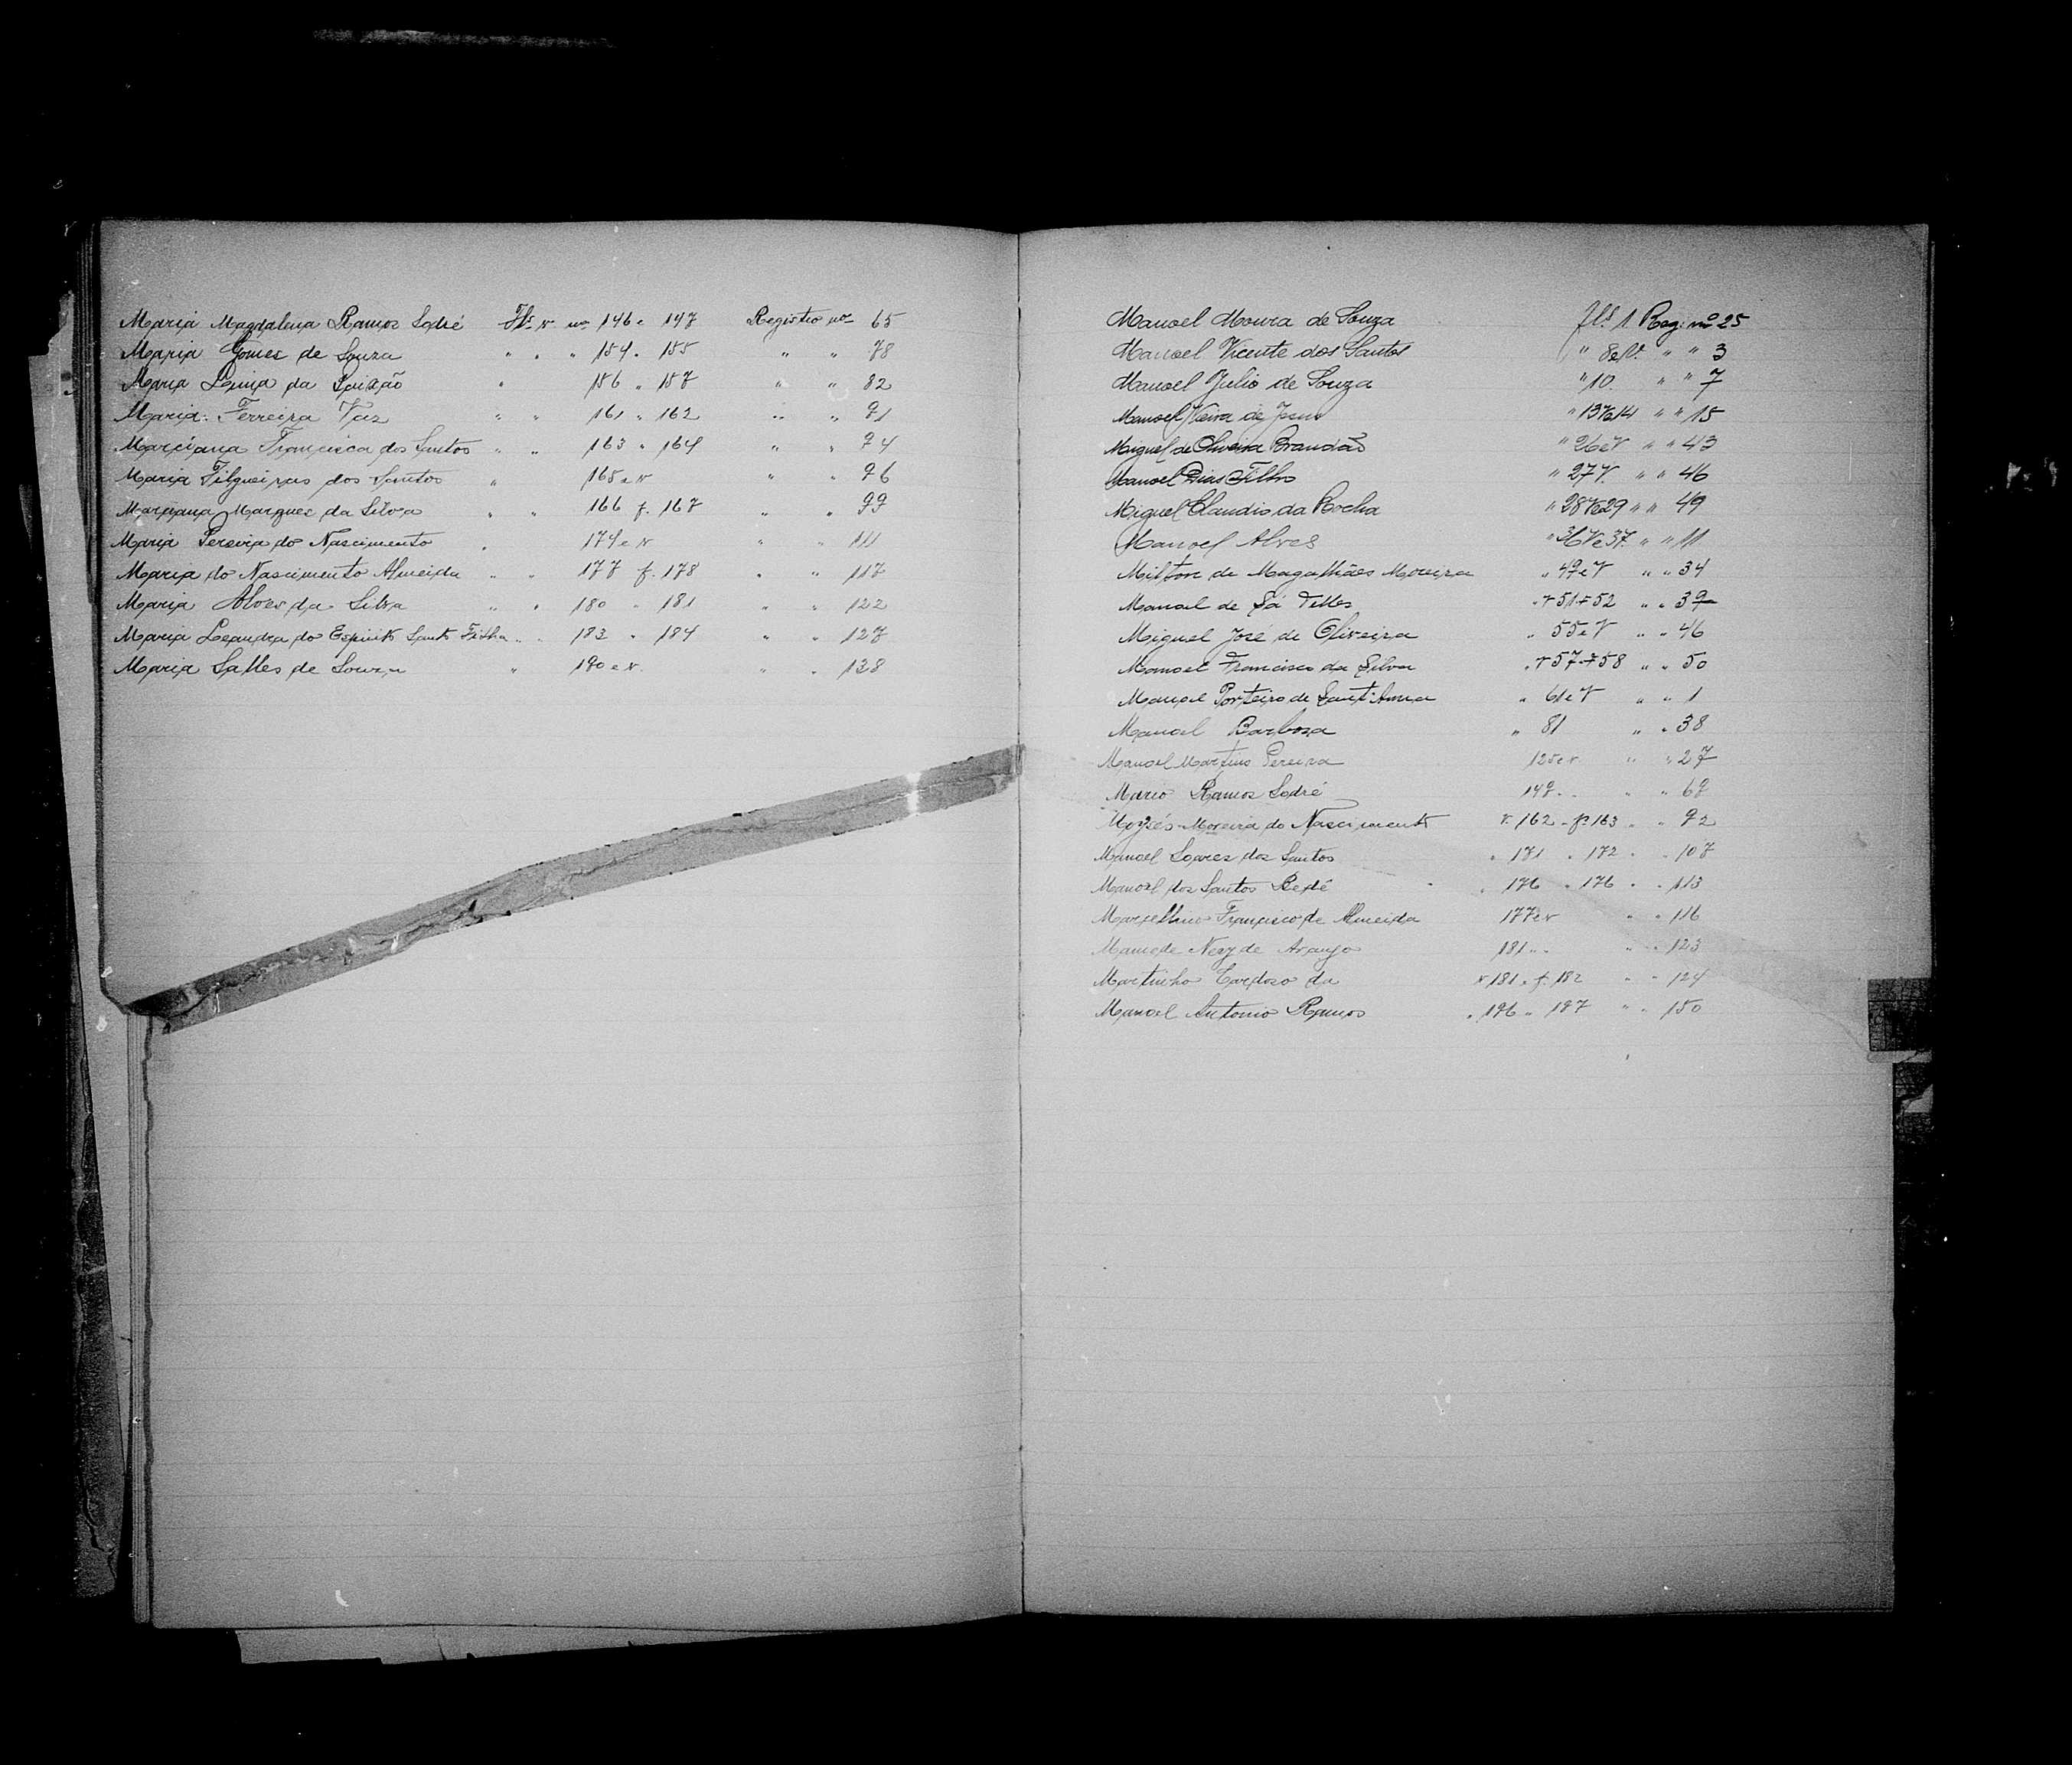 Maria Magdalena Ramos Sodré Fls v. nos 146 e 147 Registro no 65
Maria Gomes de Souza " " " 154 " 155 " " 78
Maria da " 156 " 157 " " 82
Maria Ferreira Vaz " " 161 " 162 " " 91
Marciana Francisca dos Santos " " 163 " 164 " " 94
Maria Filgueiras dos Santos " 165 e v " " 96
Marques da Silva " " 166 f. 167 " " 99
Maria Pereira do Nascimento " 174 e v " " 111
Maria do Nascimento Almeida " " 177 f. 178 " " 117
Maria Alves da Silva " " 180 " 181 " " 122
Maria Leandra do Espirito Santo Filha " " 183 " 184 " " 127
Maria Salles de Souza " 190 e v. " " 138
Manoel Moura de Souza fls 1 Reg: nº 25
Manoel Vicente dos Santos " 8 e V. " " 3
Manoel Julio de Souza " 10 " " 7
Manoel Vieira de Jesus " 13 V e 14 " " 15
Miguel de Oliveira Brandão " 26 e V " " 43
Manoel Dias Filho " 27 V. " " 46
Miguel Claudio da Rocha " 28 V e 29 " " 49
Manoel Alves " 36 V e 37. " " 11
Milton de Magalhães Moreira " 49 e V " " 34
Manoel de Sá Telles " v 51 f 52 " " 39
Miguel José de Oliveira " 55 e V " " 46
Manoel Francisco da Silva " v 57 f 58 " " 50
Manoel Porteiro de Sant'Anna " 61 e V " " 1
Manoel Barbosa " 81 " " 38
Manoel Martins Pereira 125 e v. " " 27
Mario Ramos Sodré 149 " " " " 69
Moysés Moreira do Nascimento v. 162 " f. 163 " " 92
Manoel Soares dos Santos " 171 " 172 " " 107
Manoel dos Santos " 176 " 176 " " 113
Marcellino Francisco de Almeida 177 e v " " 116
Mamede Nery de Araujo 181 " " " " 123
Martinho Cardoso da v 181 " f. 182 " " 124
Manoel Antonio Ramos " 196 " 197 " " 150